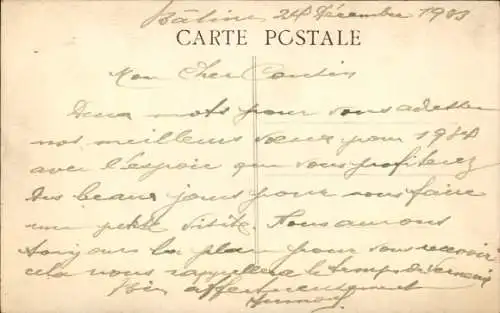 24 Décembre 19
CARTE POSTALE
Mon Cher Cousin
Deux mots pour vous adresser
nos meilleurs vœux pour
avec l'espoir que vous profiterez
des beaux jours pour nous faire
une petite visite. Nous aurons
toujours la place pour vous recevoir
cela nous rappellera le temps de
Bien affectueusement